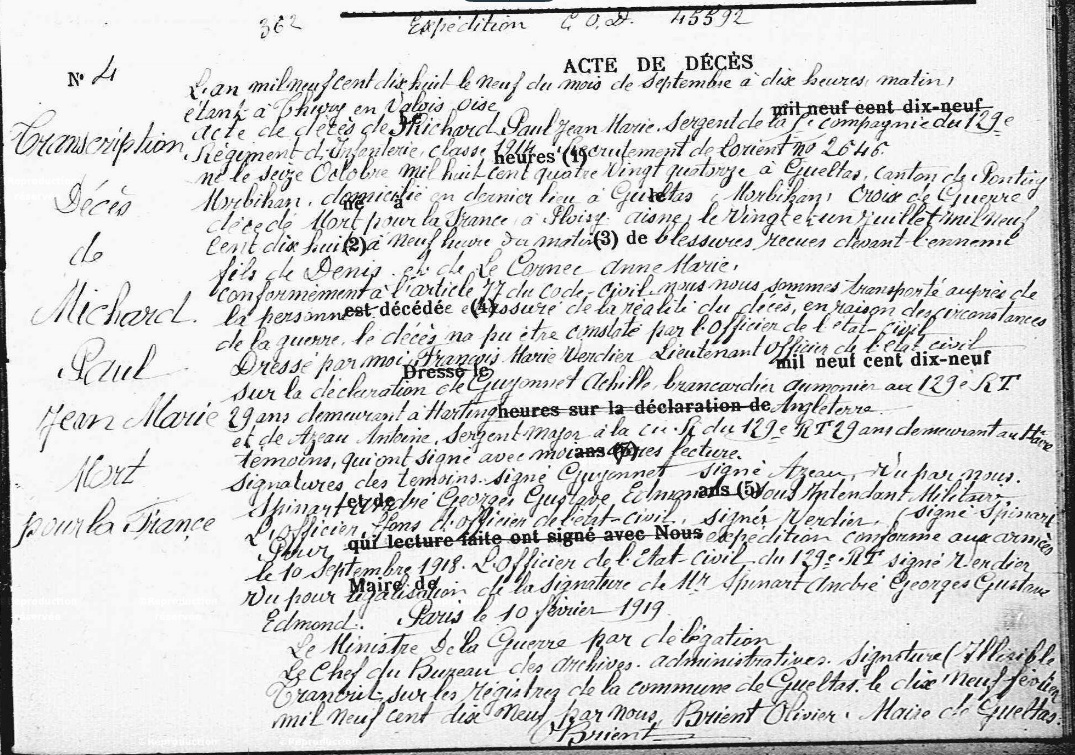 362 Expédition C.O.D. 45592
N° 4
ACTE DE DÉCÈS
L'an mil neuf cent dix huit le neuf du mois de Septembre à dix heures, matin,
étant à Thury en Valois, Oise
mil neuf cent dix-neuf
Acte de décès de Michard Paul Jean Marie, Sergent de la compagnie du 129e
Transcription
Régiment d'Infanterie, classe 1914, Recrutement de Lorient no 2646
heures (1)
né le seize Octobre mil huit cent quatre vingt quatorze à Gueltas, canton de Pontivy
Morbihan, domicilié en dernier lieu à Gueltas, Morbihan, Croix de Guerre
né à
le
Décès
décédé Mort pour la France, à Ploisy aisne, le Vingt et un Juillet mil neuf
cent dix huit à neuf heure du matin de blessures recues devant l'ennemi
(2) (3) de
de
fils de Denis et de Le Cornec Anne Marie.
conformément à l'article 77 du code-civil nous nous sommes transporté auprès de
la personne assuré de la réalité du décès, en raison des circonstances
est décédée (4)
Michard.
de la guerre, le décès na pu être constaté par l'Officier de l'état-civil
Dressé par moi, François Marie Verdier Lieutenant Officier de l'état civil
Dressé le mil neuf cent dix-neuf
Paul
sur la déclaration de Guyonnet Achille, brancardier aumonier au 129e RI
29 ans demeurant à Angleterre
heures sur la déclaration de
Jean Marie
et de Azeau Antoine, Sergent Major à la du 129e RI 29 ans demeurant au Havre
témoins, qui ont signé avec moi après lecture.
ans (5)
Mort
signatures des témoins. signé Guyonnet signé Azeau, Vu par nous.
Spinart André Georges Gustave Edmond Sous Intendant Militaire,
et de ans (5)
pour la France
L'officier, fons d'officier de l'état-civil, signés Verdier, (signé Spinart
Pour expédition conforme aux armées
qui lecture faite ont signé avec Nous
le 10 Septembre 1918. L'Officier de l'Etat Civil du 129e RI signé Verdier
Vu pour légalisation de la signature de Mr Spinart André Georges Gustave
Maire de
Edmond. Paris le 10 février 1919
Le Ministre De la Guerre par délégation
Le Chef du Bureau des archives administratives. Signature (Illisible
Transcrit sur les régistres de la commune de Gueltas. le dix neuf février
mil neuf cent dix neuf par nous, Brient Olivier. Maire de Gueltas.
O Brient